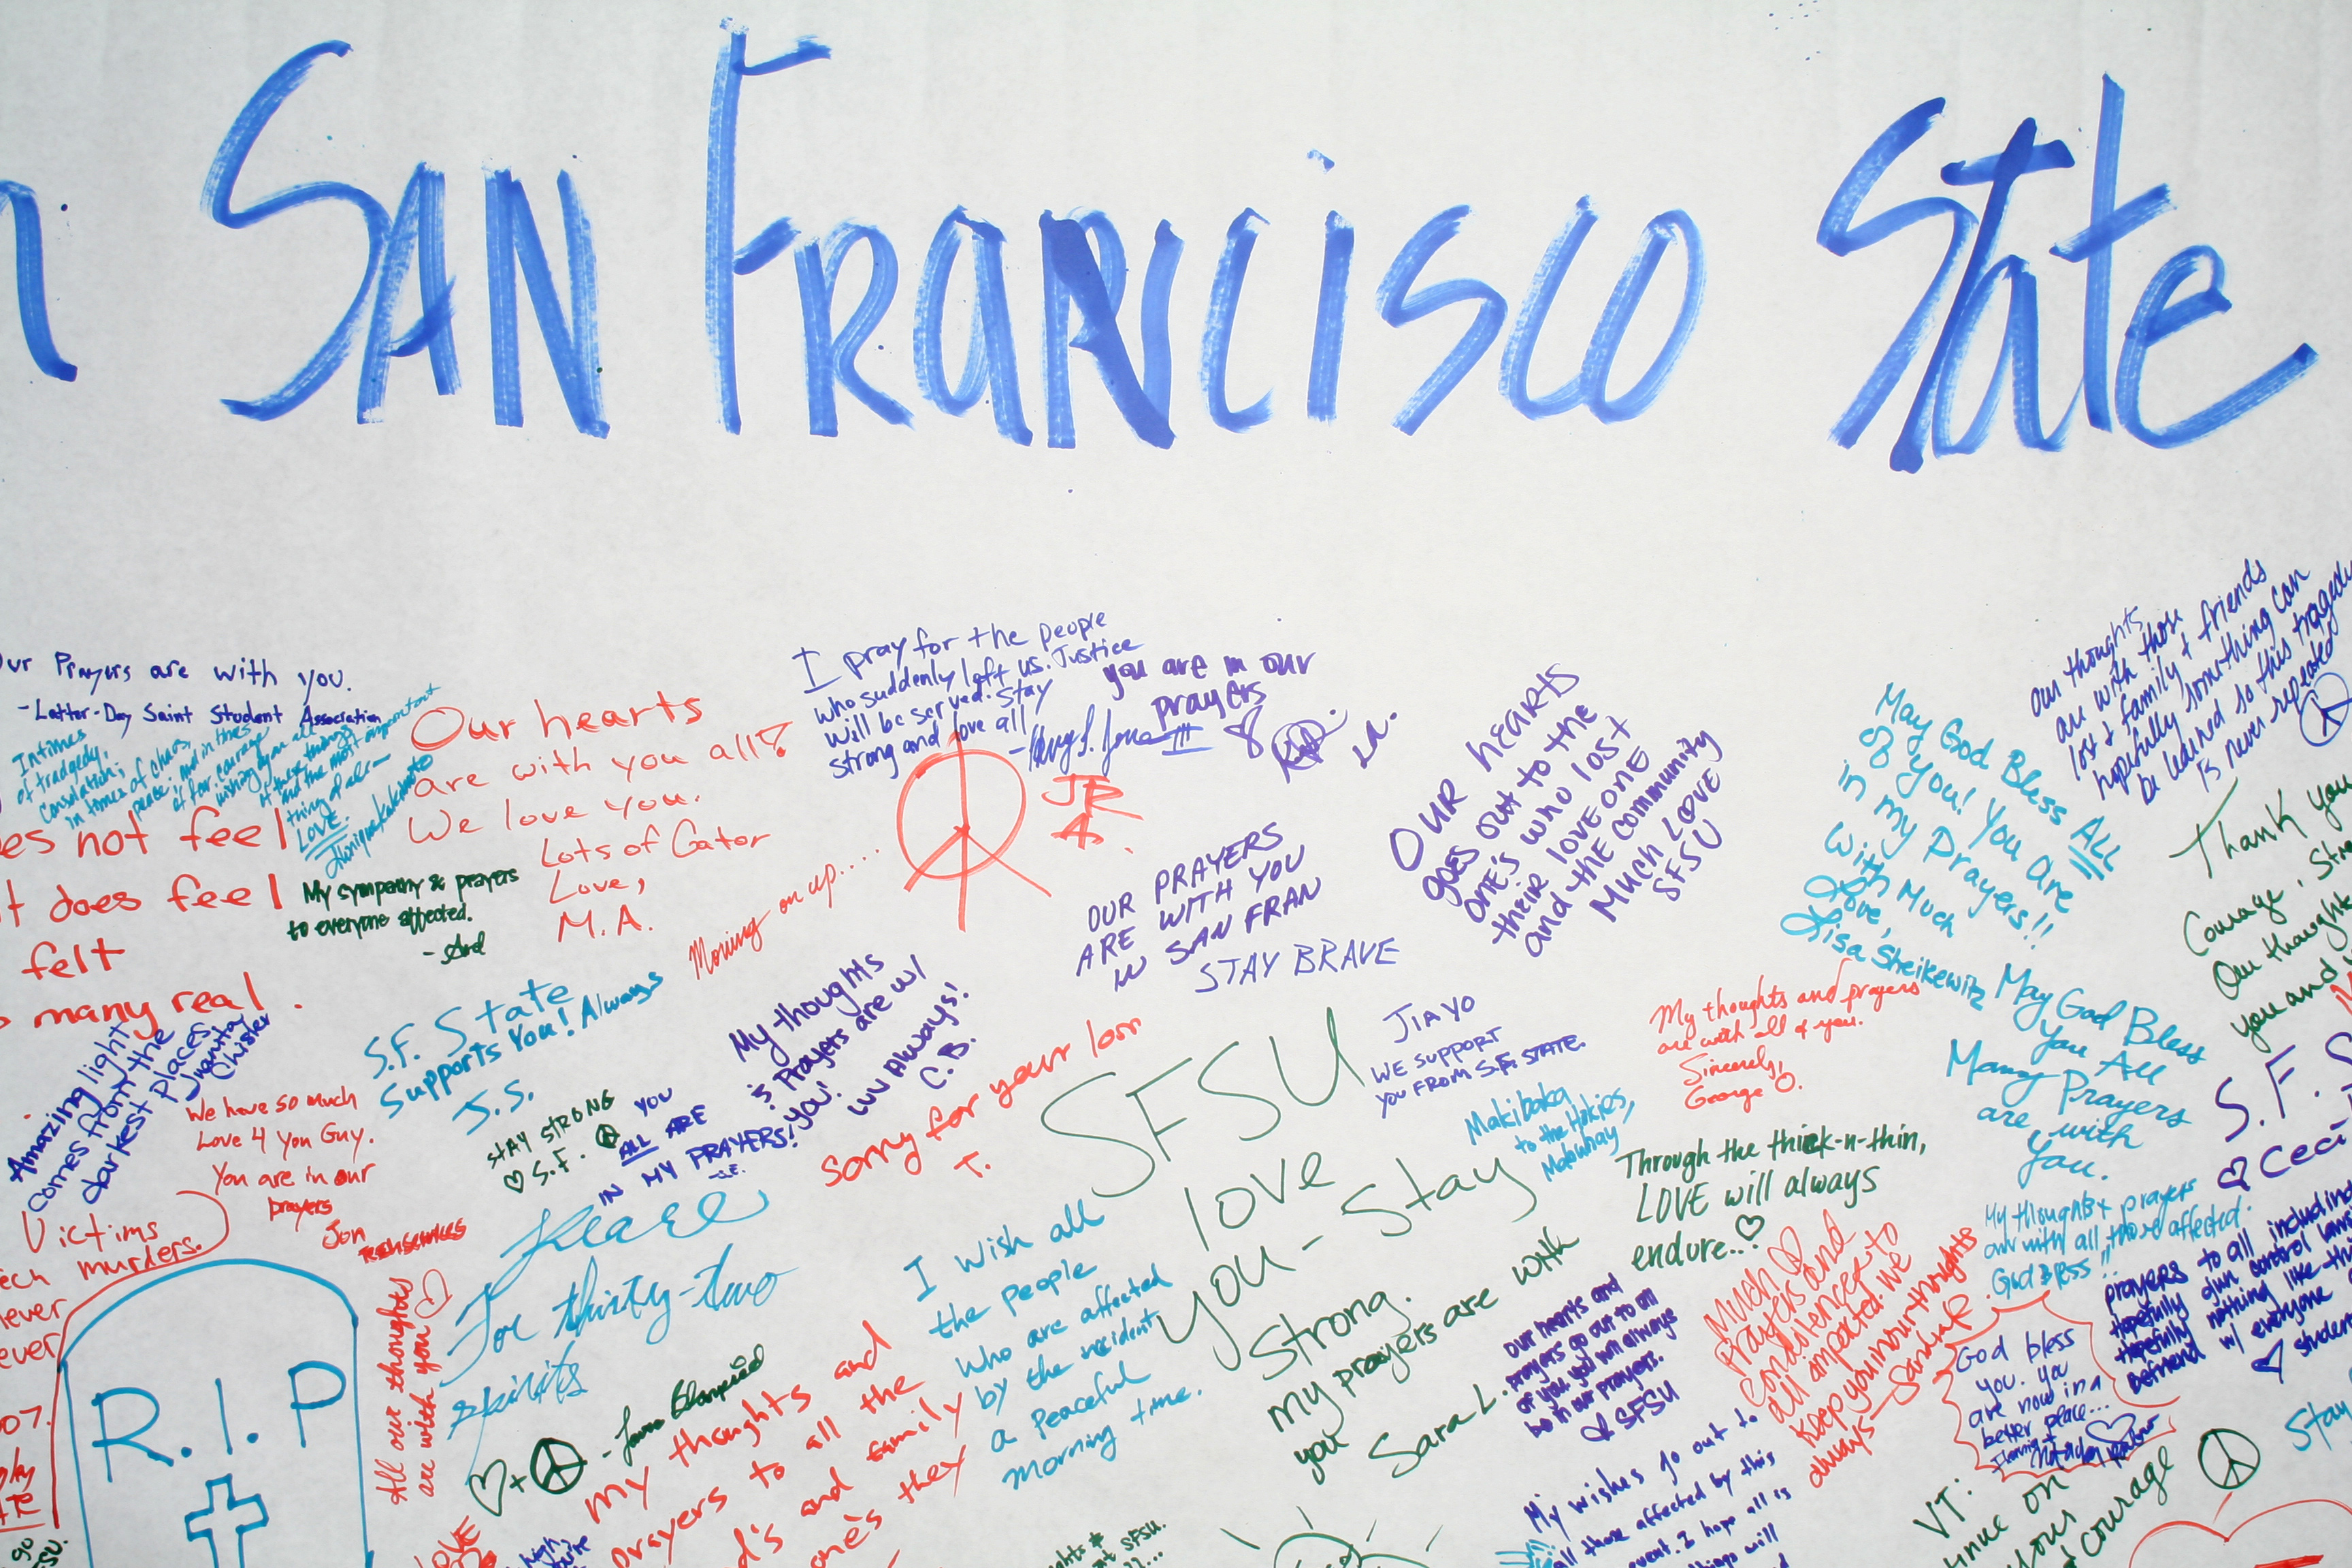 SAN FRANCISCO State
Our Prayers are with you.
-Latter-Day Saint Student Association
In times
of tradgedy,
Consolation;
in times of chaos,
peace; and in times
of fear, courage
wishing you all
of these things
and the most important
thing of all—
LOVE.
Our hearts
are with you all!
We love you.
Lots of Gator
Love,
M.A.
I pray for the people
who suddenly left us. Justice
will be served. Stay
strong and love all
III
you are in our
prayers
JR
A.
OUR HEARTS
GOES OUT TO THE
ONE'S WHO LOST
their LOVE ONE
and the COMMUNITY
Much LOVE
SFSU
May God Bless ALL
of you! You Are
in my Prayers!!
With Much
Love,
Lisa Sheikewitz
our thoughts
are with those
lost & family & friends
hopefully something can
be learned so this tragedy
is never repeated
Thank you
Courage, Stre
Our thoughts
you and
es not feel
t does feel
felt
many real.
My sympathy & prayers
to everyone affected.
Moving on up....
OUR PRAYERS
ARE WITH YOU
IN SAN FRAN
STAY BRAVE
S.F. State
Supports You! Always
J.S.
My thoughts
& Prayers are w/
YOU!
luv Always!
C.B.
Amazing light
comes from the
darkest places
Juanita
Chisler
We have so much
Love 4 you Guy.
You are in our
prayers
Jon
STAY STRONG
S.F.
YOU
ALL ARE
IN MY PRAYERS!
Sorry for your loss
T.
SFSU
love
you - stay
Strong.
JIAYO
WE SUPPORT
YOU FROM S.F. STATE.
Makibaka
to the Hokies,
Mabuhay
My thoughts and prayers
are with all of you.
Sincerely,
George O.
May God Bless
You All
Many Prayers
are with
You.
S.F.S
Ceci
Through the thick-n-thin,
LOVE will always
endure...
Victims
ech murders.
ever
ever
007.
R.I.P
All our thoughts
are with you
Peace
For thirty-two
spirits
I wish all
the people
who are affected
by the incident
a peaceful
morning time.
my prayers are with
you
Sara L.
our hearts and
prayers go out to all
of you, you will always
be in our prayers.
SFSU
Much
Prayers and
Condolences to
all impacted. We
keep you in our thoughts
always — Sandra P.
My thoughts & prayers
are with all those affected.
God Bless!!
prayers to all including
Hopefully gun control laws
Hopefully nothing like this
Befriend w/ everyone
student
God bless
you. ya
are now in a
better place...
my thoughts and
prayers to all the
and family
one's they
My wishes go out to
all those affected by this
event. I hope all is
will
VT:
on
your
courage
Stay
LOVE